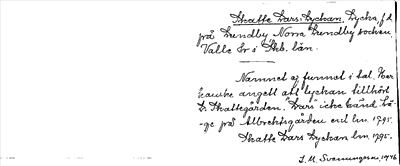 Skatte Lars-Lyckan, Lycka, f.d.
på Lundby Norra Lundby socken,
Valle hd i Skb. län.
Namnet ej funnet i tal. Har
kanske angett att lyckan tillhört
Skattegården. "Lars" icke känd
på Albrechtsgården enl lm. 1795.
Skatte Lars Lyckan lm. 1795.
J. M. Svenningsson, 1946